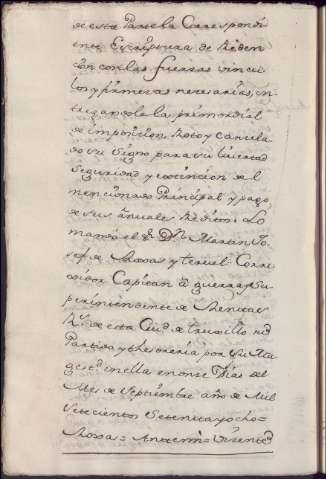 de esta Parte la Correspondi
ente Escriptura de Reden
cion con las fuerzas vincu
los y firmezas nesesarias, en
tregandole la primordial
de imposicion, Rota y Cancela
da su Signo para su livertad
Seguridad y extincion del
mencionado Prinsipal y pago
de sus anuales Reditos. Lo
mando el S.r D.n Martin Jo-
sef de Roxas y teruel Corre
xidor Capitan a guerra y Su
perintendente de Rentas
R.s de esta Ciud de truxillo su
Partido y thesoreria por Su Ma
gestd en ella en onze Dias del
Mes de Septiembre año de Mil
Setecientos Setenta y ocho=
Roxas= Antemi= Vizente